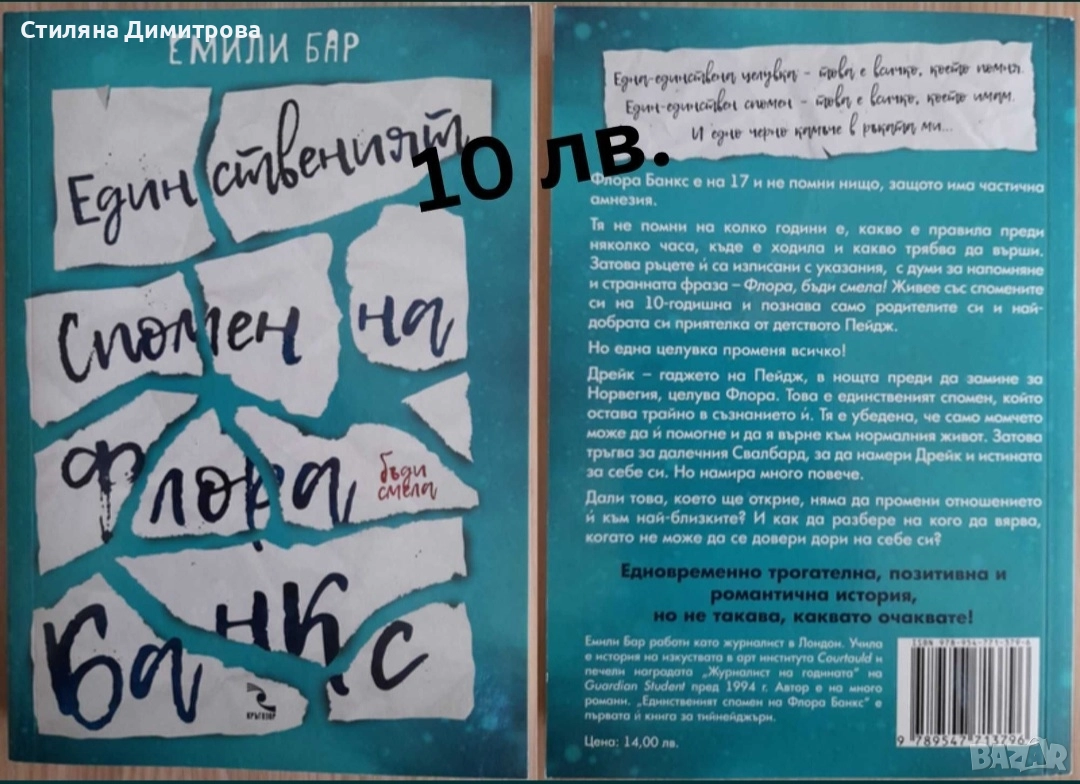 Стиляна Димитрова
ЕМИЛИ БАР
Единственият
Спомен на
Флора
бъди
смела
Банкс
КРЪГОЗОР
10 лв.
Една-единствена целувка – това е всичко, което помня.
Един-единствен спомен – това е всичко, което имам.
И едно черно камъче в ръката ми...
Флора Банкс е на 17 и не помни нищо, защото има частична
амнезия.
Тя не помни на колко години е, какво е правила преди
няколко часа, къде е ходила и какво трябва да върши.
Затова ръцете ѝ са изписани с указания, с думи за напомняне
и странната фраза – Флора, бъди смела! Живее със спомените
си на 10-годишна и познава само родителите си и най-
добрата си приятелка от детството Пейдж.
Но една целувка променя всичко!
Дрейк – гаджето на Пейдж, в нощта преди да замине за
Норвегия, целува Флора. Това е единственият спомен, който
остава трайно в съзнанието ѝ. Тя е убедена, че само момчето
може да ѝ помогне и да я върне към нормалния живот. Затова
тръгва за далечния Свалбард, за да намери Дрейк и истината
за себе си. Но намира много повече.
Дали това, което ще открие, няма да промени отношението
ѝ към най-близките? И как да разбере на кого да вярва,
когато не може да се довери дори на себе си?
Едновременно трогателна, позитивна и
романтична история,
но не такава, каквато очаквате!
Емили Бар работи като журналист в Лондон. Учила
е история на изкуствата в арт института Courtauld и
печели наградата „Журналист на годината“ на
Guardian Student пред 1994 г. Автор е на много
романи. „Единственият спомен на Флора Банкс“ е
първата ѝ книга за тийнейджъри.
Цена: 14,00 лв.
ISBN 978-954-771-379-6
9 789547 713796
BAZAR